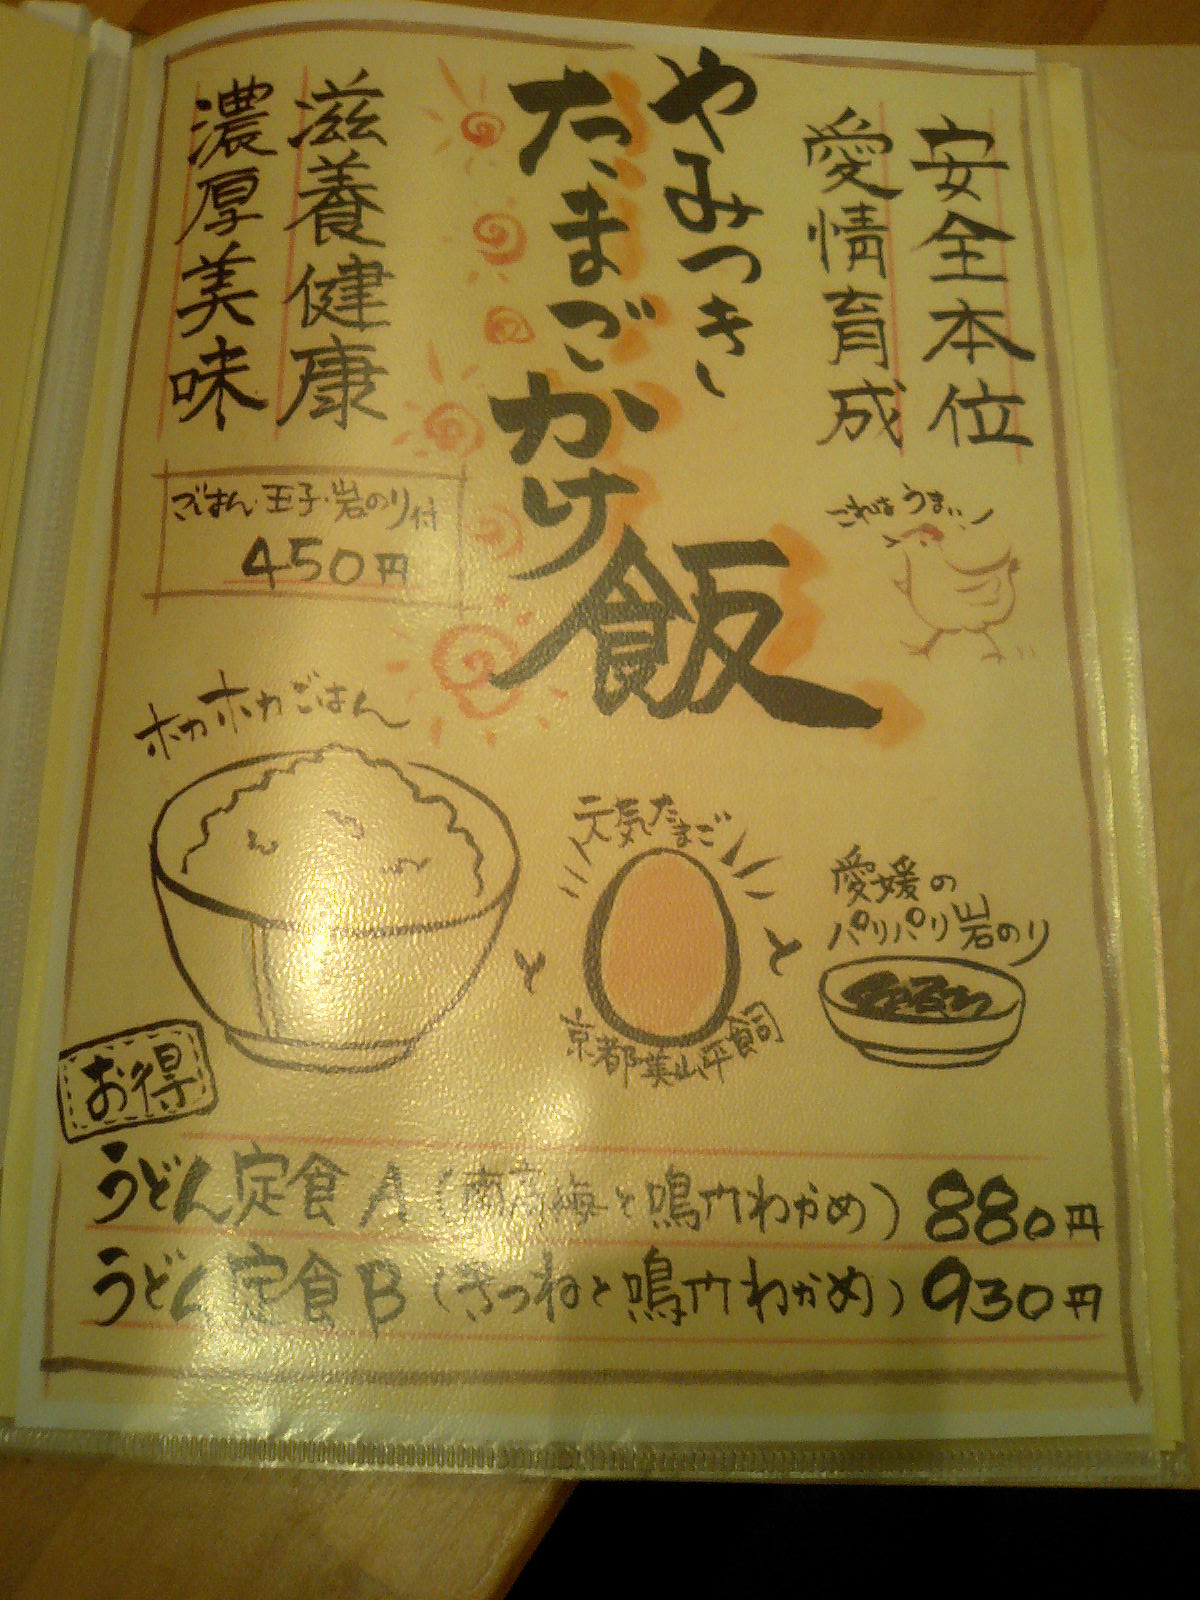 安全本位
愛情育成
やみつき
たまごかけ飯
滋養健康
濃厚美味
ごはん・玉子・岩のり付
450円
これはうまい
ホカホカごはん
と
元気たまご
京都美山平飼
と
愛媛の
パリパリ岩のり
お得
うどん定食A(南高梅と鳴門わかめ)880円
うどん定食B(きつねと鳴門わかめ)930円